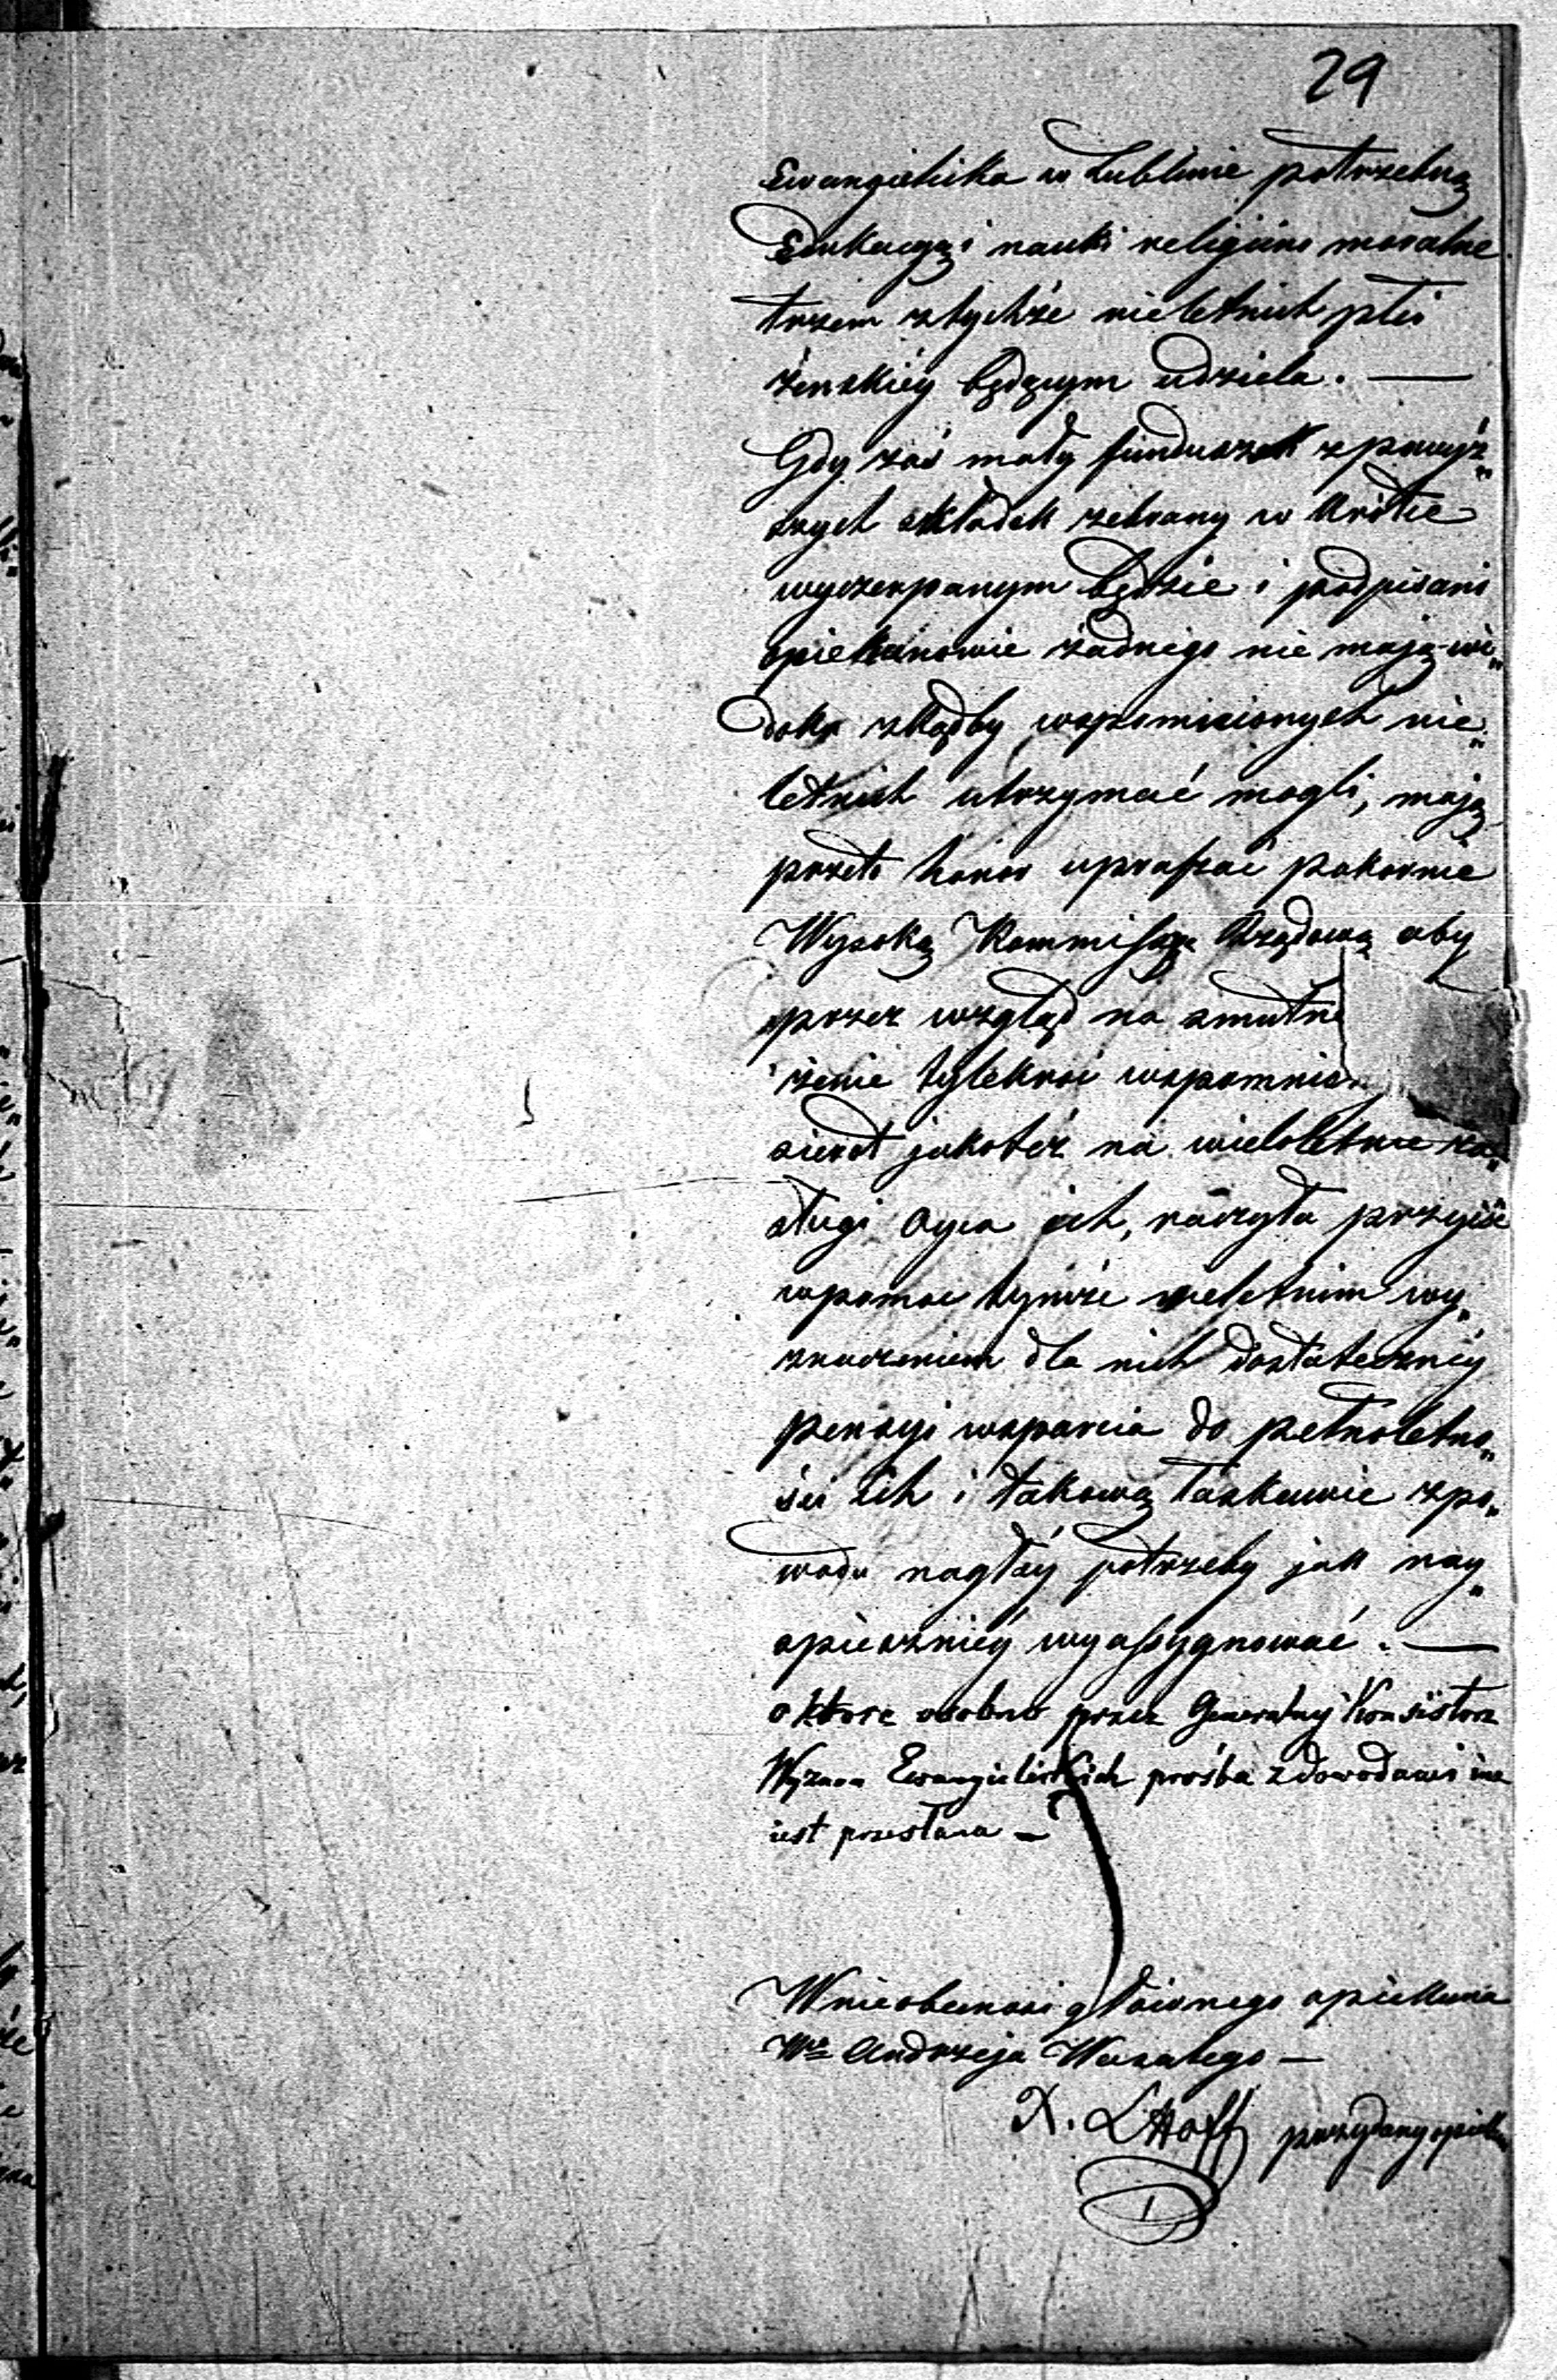 29
Ewangielicka w Lublinie potrzebną
Edukacyą i nauki religijno moralne
trzem z tychże nieletnich płci
żeńskiéy będącym udziela. —
Gdy zaś mały funduszek z powyż„
szych składek zebrany w krótce
wyczerpanym będzie i podpisani
opiekunowie żadnego nie mają wi„
doku zkądby wspomnionych nie„
letnich utrzymać mogli, mają
przeto honor upraszać pokornie
Wysoką Kommissyę Rządową aby
przez wzgląd na smutne
żenie tylekroć wspomnion
sierot jakoteż na wieloletnie za„
sługi Oyca ich, raczyła przyiść
w pomoc tymże nieletnim wy„
znaczeniem dla nich dostateczney
pensyi wsparcia do pełnoletno„
ści ich i takową łaskawie z po„
wodu nagłéy potrzeby jak nay„
spieszniéy wyassygnować. —
o które osobno przez Generalny Konsistorz
Wyznań Ewangielickich prośba z dowodami
iest przesłana —
W nieobecności głównego opiekuna
Wo Andrzeja
X. L Hoff przydany opiekun